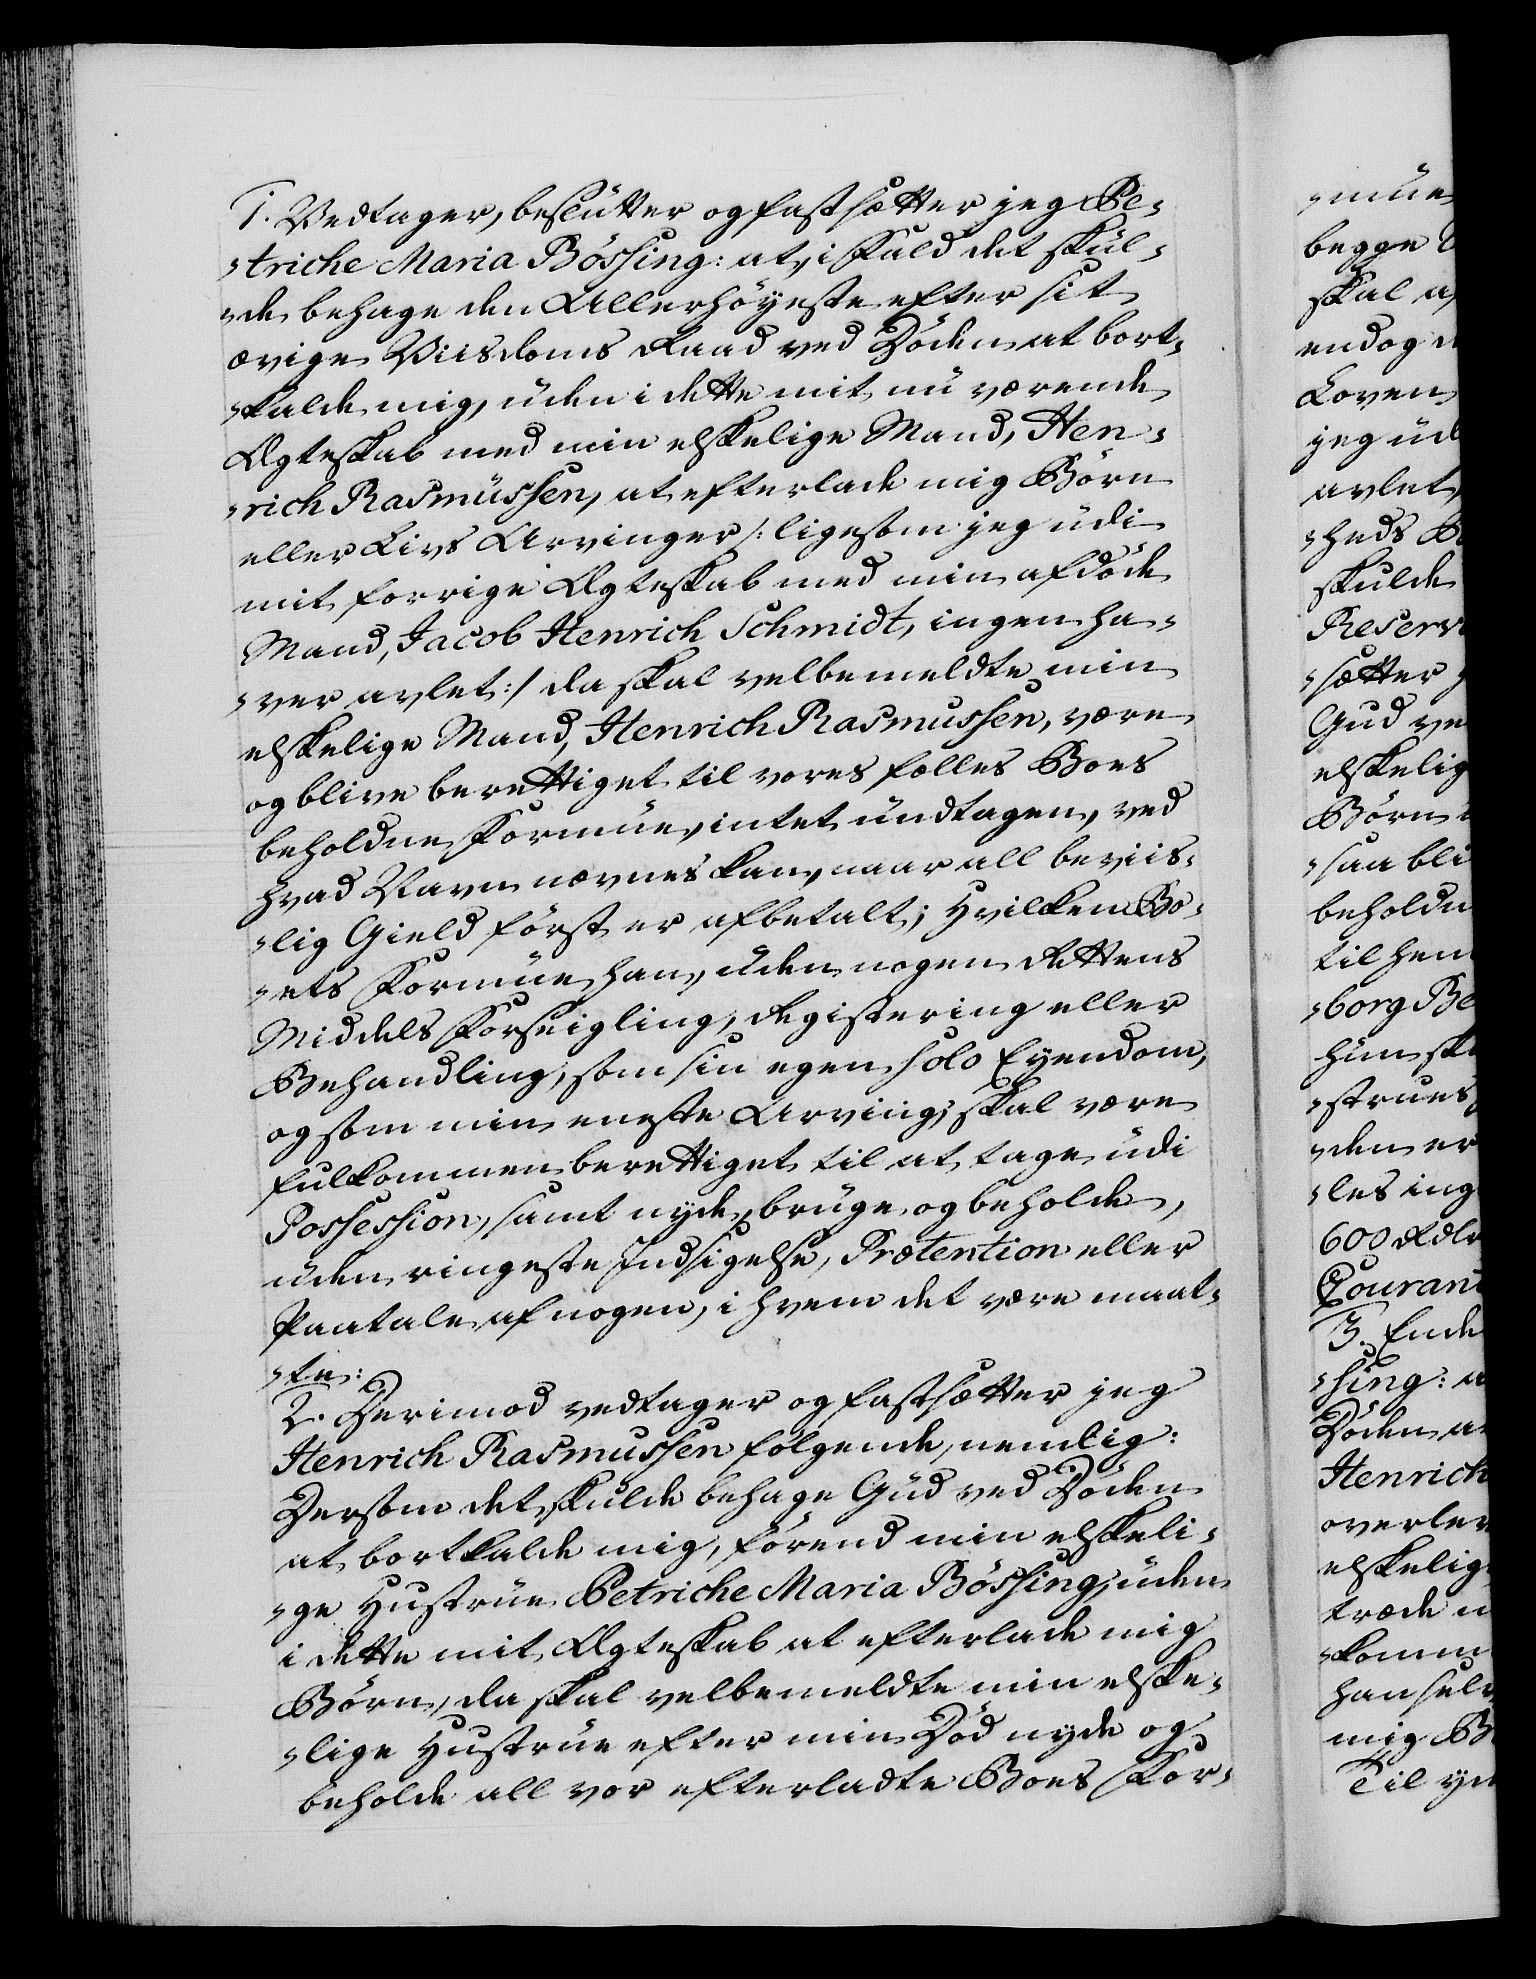 1. Vedtager, beslutter og fastsætter jeg Pe-
-triche Maria Bössing: at, i Fald det skul-
-de behage den Allerhöyeste efter sit
ævige Viisdoms Raad ved Döden at bort-
-kalde mig, uden i dette mit nu værende
Ægteskab med min elskelige Mand, Hen-
-rich Rasmussen, at efterlade mig Börn
eller Livs Arvinger /: ligesom jeg udi
mit forrige Ægteskab med min afdöde
Mand, Jacob Henrich Schmidt, ingen ha-
-ver avlet :/ da skal velbemeldte min
elskelige Mand, Henrich Rasmussen, være
og blive berettiget til vores fælles Boes
beholdne Formue, intet undtagen, ved
hvad Navn nævnes kan, naar all beviis-
-lig Gield först er afbetalt; Hvilken Bo-
-ets Formue han, uden nogen Rettens
Middels Forseigling, Registering eller
Behandling, som sin egen solo Eyendom,
og som min eneste Arving, skal være
fulkommen berettiget til at tage udi
Possession, samt nyde, bruge og beholde,
uden ringeste Indsigelse, Prætention eller
Paatale af nogen, i hvem det være maat-
-te:
2. Derimod vedtager og fastsætter jeg
Henrich Rasmussen fölgende, nemlig:
Dersom det skulde behage Gud ved Döden
at bortkalde mig, förend min elskeli-
-ge Hustrue Petriche Maria Bössing, uden
i dette mit Ægteskab at efterlade mig
Börn, da skal velbemeldte min elske-
-lige Hustrue efter min Död nyde og
beholde all vor efterladte Boes For-
-mue
begge
skal
endog
Loven
jeg
avlet,
-heds
skulde
-sætter
Gud
Börn
-saa
til
-borg
-strues
-den er
-les
600 Rdlr
Courant
3. Ende
-sing:
Döden
Henrich
træde
mig
Til